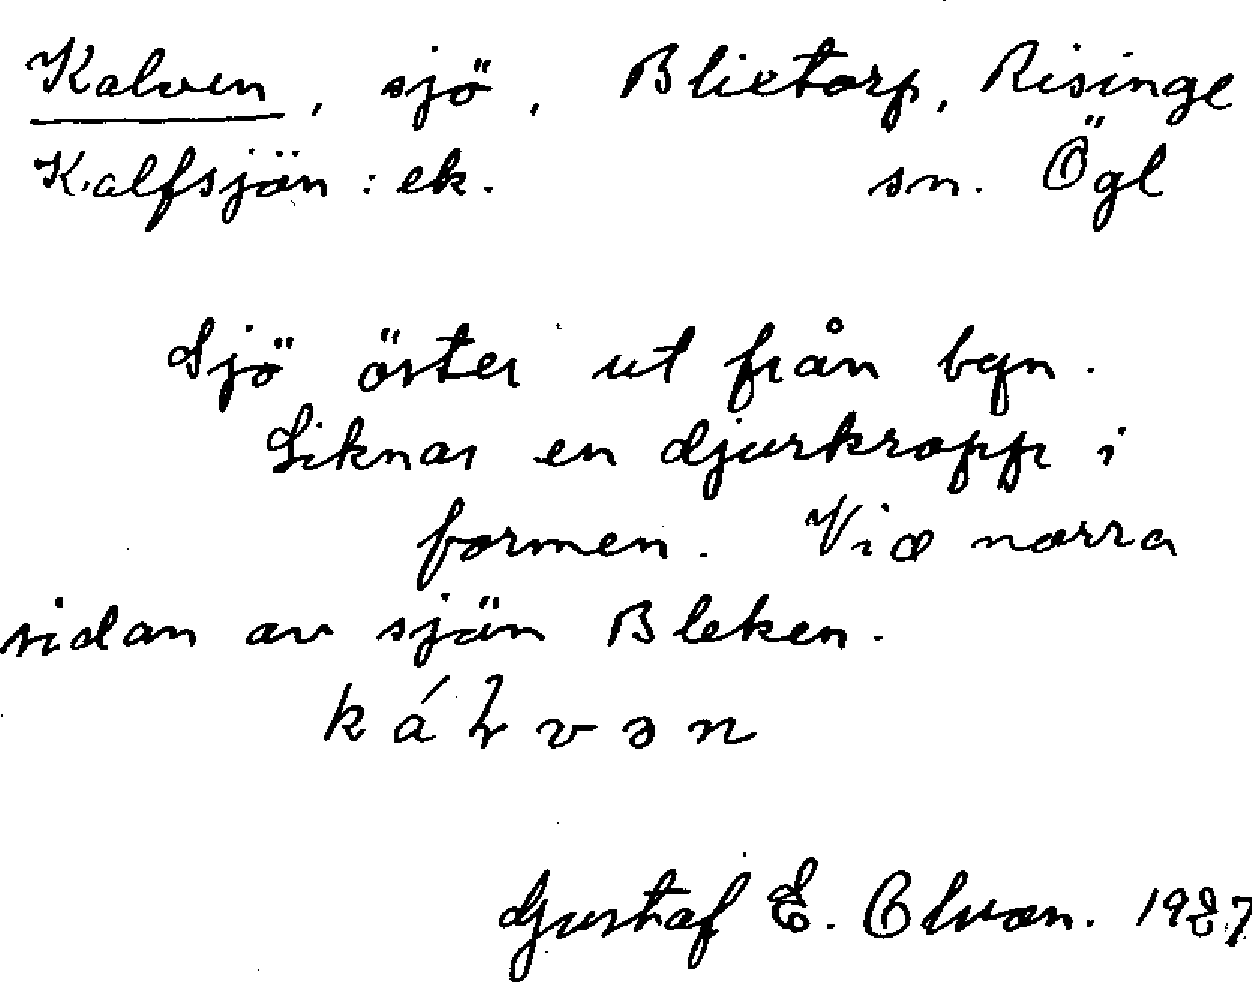 Kalven, sjö, Blietorp, Risinge
Kalfsjön: ek. sn. Ögl
Sjö öster ut från byn.
Liknar en djurkropp i
formen. Vid norra
sidan av sjön Bleken.
kálvən
Gustaf E. Olvon. 1927